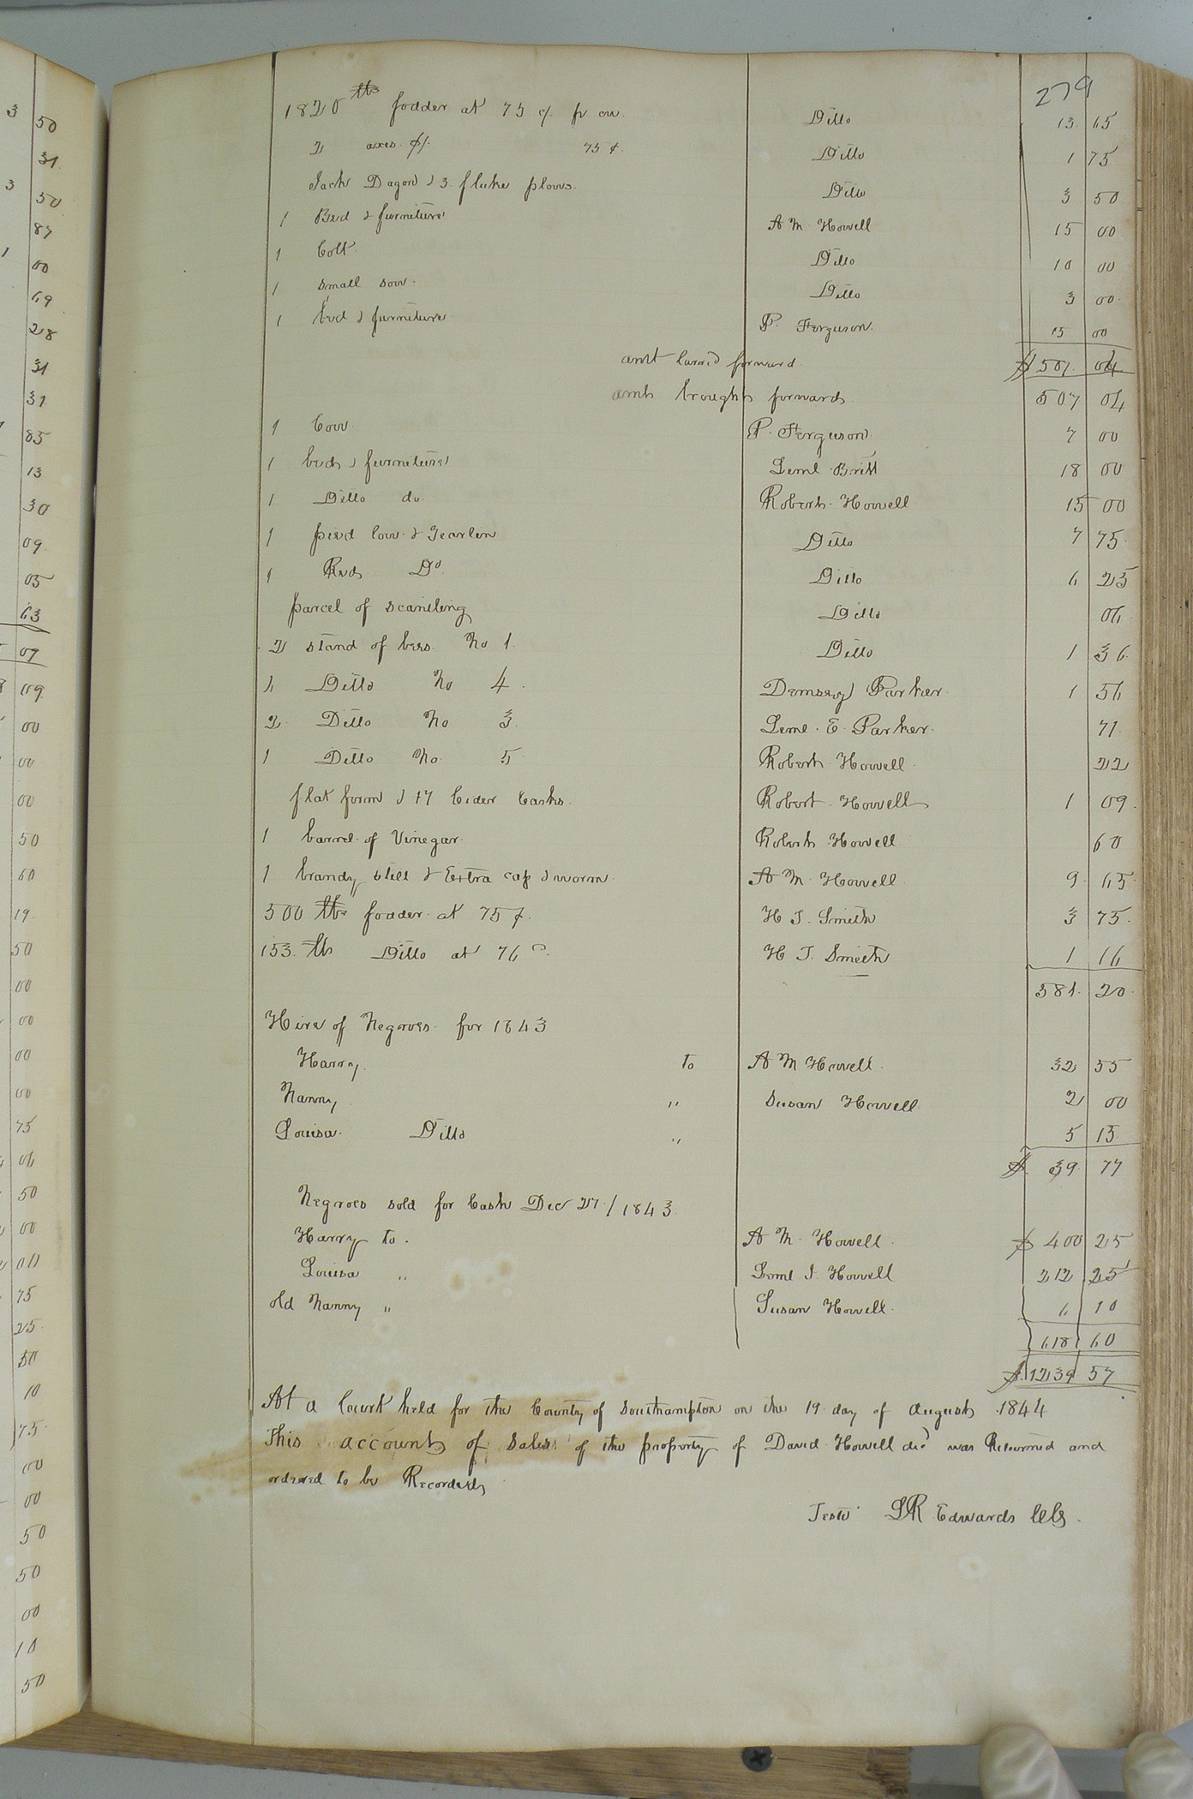 279
1820 lbs fodder at 75 c/ pr cw. Ditto 13 65
2 axes 75 ¢ Ditto 1 75
Jack Dagon & 3 fluke plows. Ditto 3 50
1 Bed & furniture A M Howell 15 00
1 Colt Ditto 10 00
1 small sow Ditto 3 00
1 bed & furniture P. Ferguson 15 00
amt carried forward $ 507 04
amt brought forward 507 04
1 Cow P. Ferguson 7 00
1 bed & furniture Leml Britt 18 00
1 Ditto do Robert Howell 15 00
1 pied cow & Yearlen Ditto 7 75
1 Red Do Ditto 6 25
parcel of scantling Ditto 06
2 stand of bees No 1 Ditto 1 36
Ditto No 4 Demsey Parker 1 56
2 Ditto No 3 Leml. E. Parker 71
1 Ditto No 5 Robert Howell 22
flat form & 17 Cider Casks Robert Howell 1 09
1 barrel of Vinegar Robert Howell 60
1 brandy still & Extra cap & worm A M Howell 9 65
500 lbs fodder at 75 ¢ H J. Smith 3 75
153 lbs Ditto at 76 H J. Smith 1 16
581 20
Hire of Negroes for 1843
Harry to A M Howell 32 55
Nanny " Susan Howell 2 00
Louisa Ditto " 5 15
$ 39 77
Negroes sold for Cash Dec 27/1843
Harry to A M Howell $ 400 25
Louisa " Leml J. Howell 212 25
old Nanny " Susan Howell 6 10
618 60
$ 1239 57
At a Court held for the County of Southampton on the 19 day of August 1844
This account of Sales of the property of David Howell decd was Returned and
ordered to be Recorded
Teste L R Edwards Clk
3 50
31
3 50
87
1 00
69
28
31
31
85
13
30
09
05
63
07
09
00
00
00
50
60
19
50
00
00
00
00
75
06
50
00
00
75
25
50
10
75
00
00
50
50
00
10
50